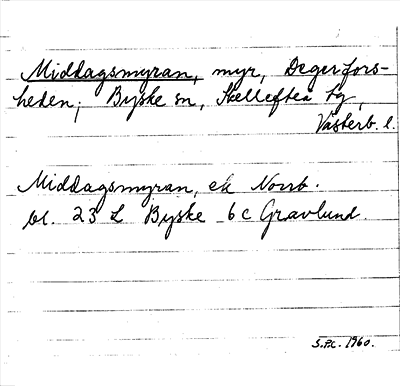 Middagsmyran, myr, Degerfors-
heden, Byske sn, Skellefteå tg,
Västerb. l.
Middagsmyran, ek Norrb.
bl. 23 L Byske 6c Gravlund.
S.P.C. 1960.